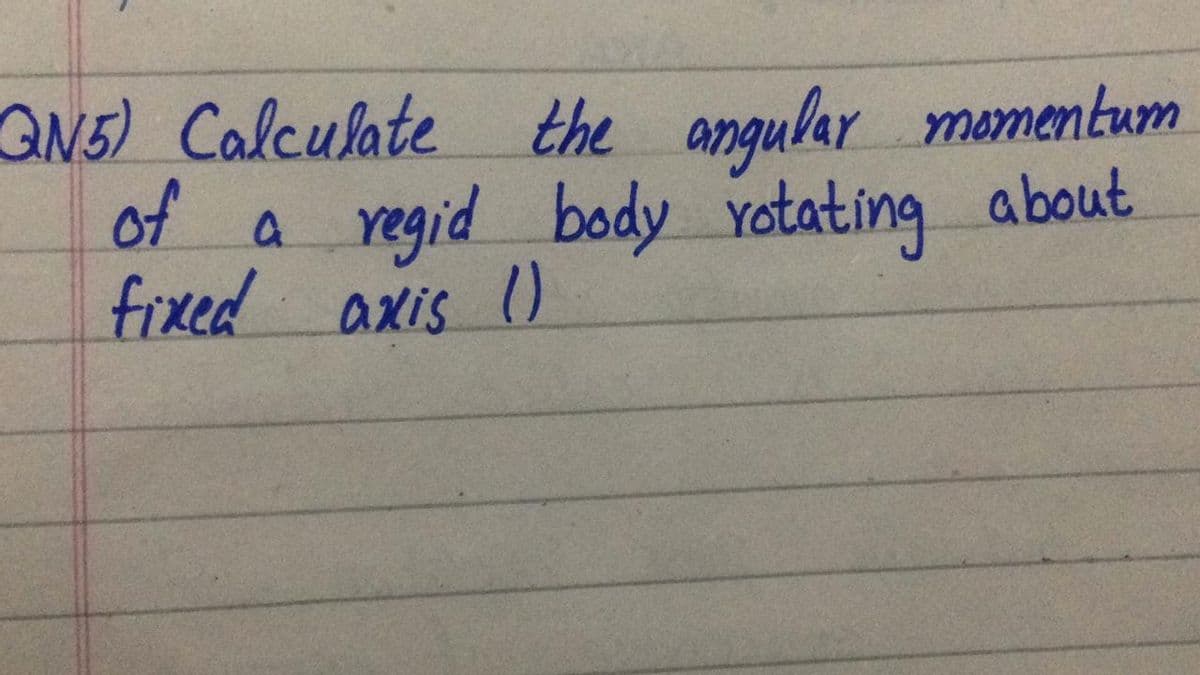 QN5) Calculate the angular momentum
of a regid body rotating about
fixed axis ()